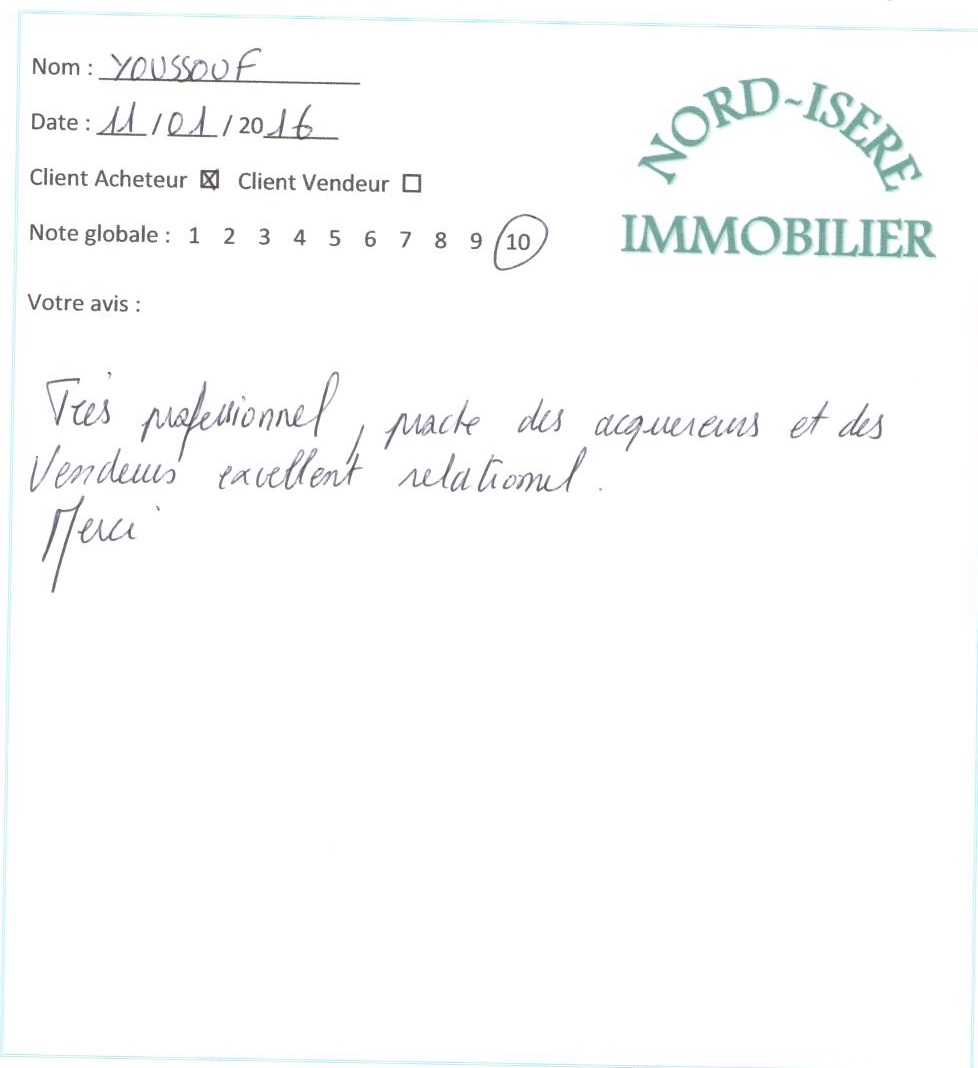 Nom : YOUSSOUF
Date : 11 / 01 / 2016
Client Acheteur ☒ Client Vendeur ☐
Note globale : 1 2 3 4 5 6 7 8 9 10
NORD-ISERE
IMMOBILIER
Votre avis :
Très professionnel, proche des acquereurs et des
Vendeurs excellent relationnel.
Merci